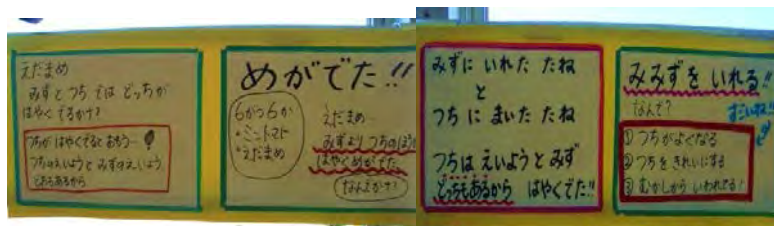 えだまめ
みずとつちではどっちが
はやくでるかな?
つちがはやくでるとおもう…
つちのえいようとみずのえいよう
どっちもあるから
めがでた!!
6がつ6か
・ミニトマト
・えだまめ
えだまめ…
みずよりつちのほうが
はやくめがでた
なんでかな?
みずに いれた たね
と
つちに まいた たね
つちは えいようと みず
どっちもあるから はやくでた!!
みみずを いれる!!
なんで?
すごいね!!
① つちがよくなる
② つちをきれいにする
③ むかしからいわれてる!